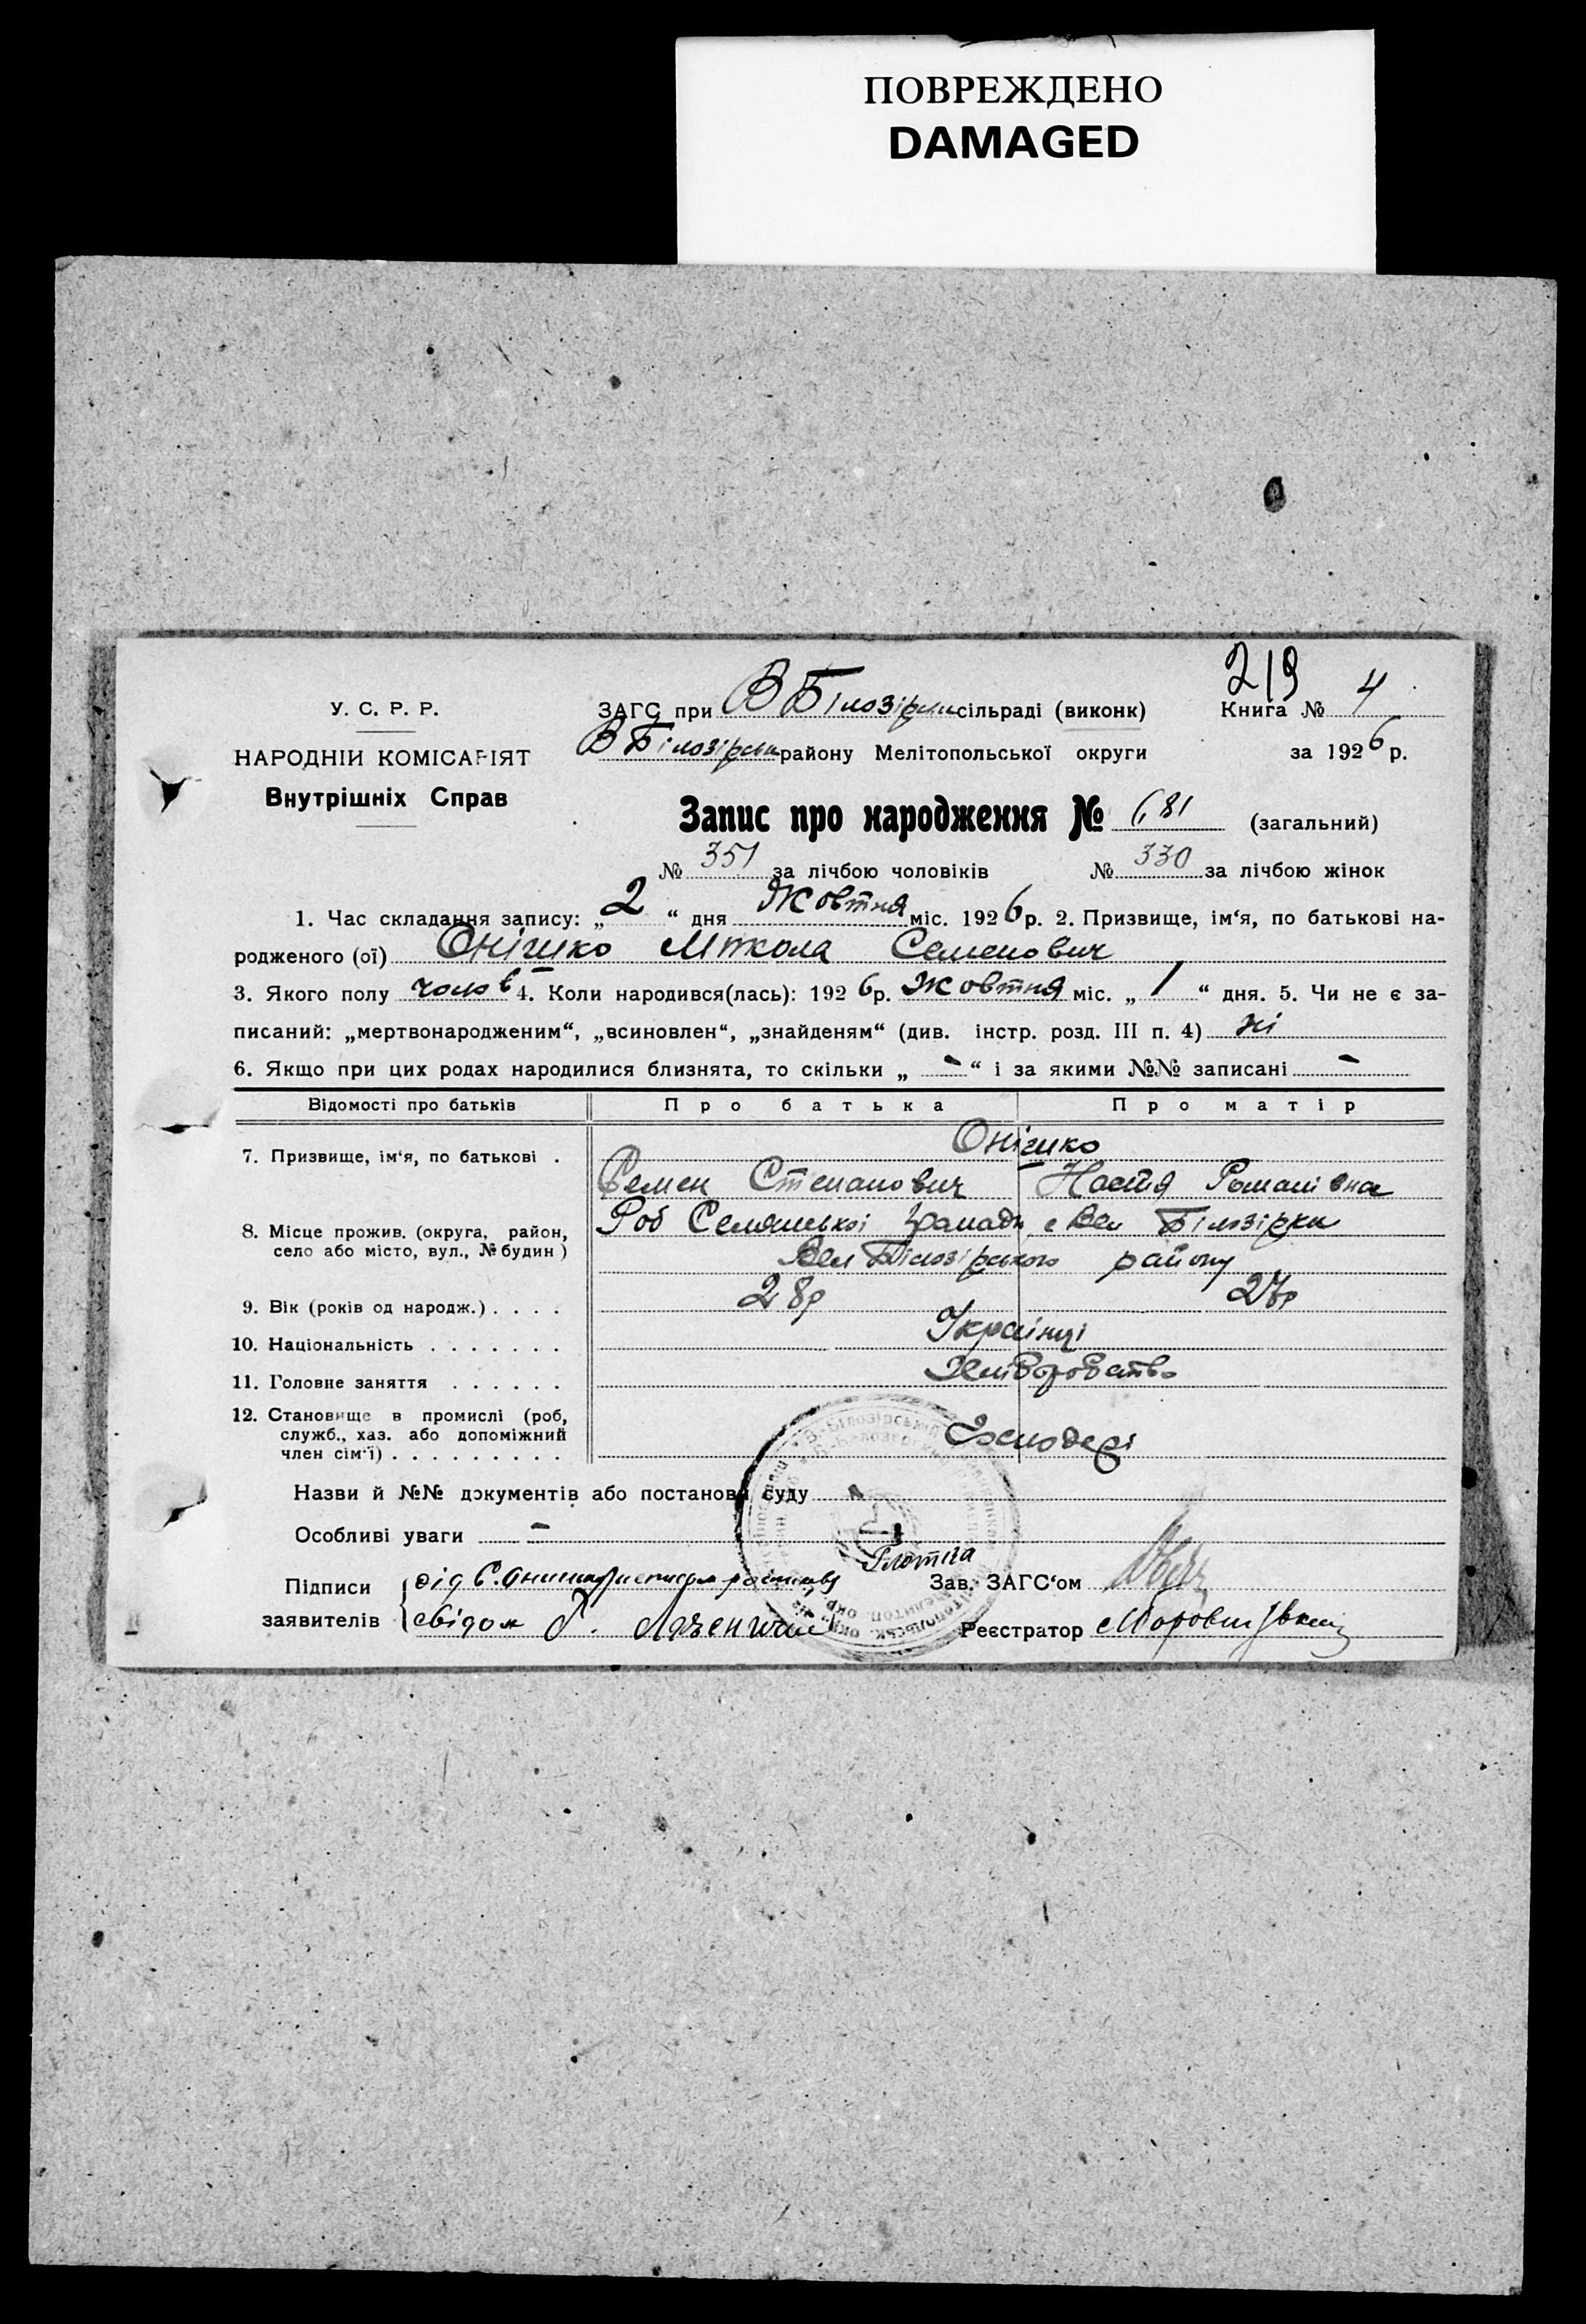 ПОВРЕЖДЕНО
DAMAGED
219
У. С. Р. Р.
ЗАГС при В Білозірськ сільраді (виконк)
Книга № 4
НАРОДНІЙ КОМІСАРІЯТ
В Білозірськ району Мелітопольської округи
за 1926 р.
Внутрішніх Справ
Запис про народження № 681 (загальний)
№ 351 за лічбою чоловіків № 330 за лічбою жінок
1. Час складання запису: „2“ дня Жовтня міс. 1926 р. 2. Призвище, ім‘я, по батькові на-
родженого (ої) Онішко Микола Семенович
3. Якого полу чолов 4. Коли народився(лась): 1926 р. Жовтня міс. „1“ дня. 5. Чи не є за-
писаний: „мертвонародженим“, „всиновлен“, „знайденям“ (див. інстр. розд. III п. 4) ні
6. Якщо при цих родах народилися близнята, то скільки „-“ і за якими №№ записані -
Відомості про батьків Про батька Про матір
Онішко
7. Призвище, ім‘я, по батькові .
Семен Степанович Настя Романівна
Роб Селянської Громади с Вел Білозірки
8. Місце прожив. (округа, район,
село або місто, вул., № будин)
Вел Білозірського району
9. Вік (років од народж.) . . . . 28р 27р
10. Національність . . . . . . . Українці
11. Головне заняття . . . . . . Хліборобство
12. Становище в промислі (роб,
служб., хаз. або допоміжний
член сім‘ї) . . . . . . . . . Господарі
Назви й №№ документів або постанови суду
Особливі уваги -
Підписи
заявителів
дід С.
свідок
Зав. ЗАГС‘ом
Реєстратор